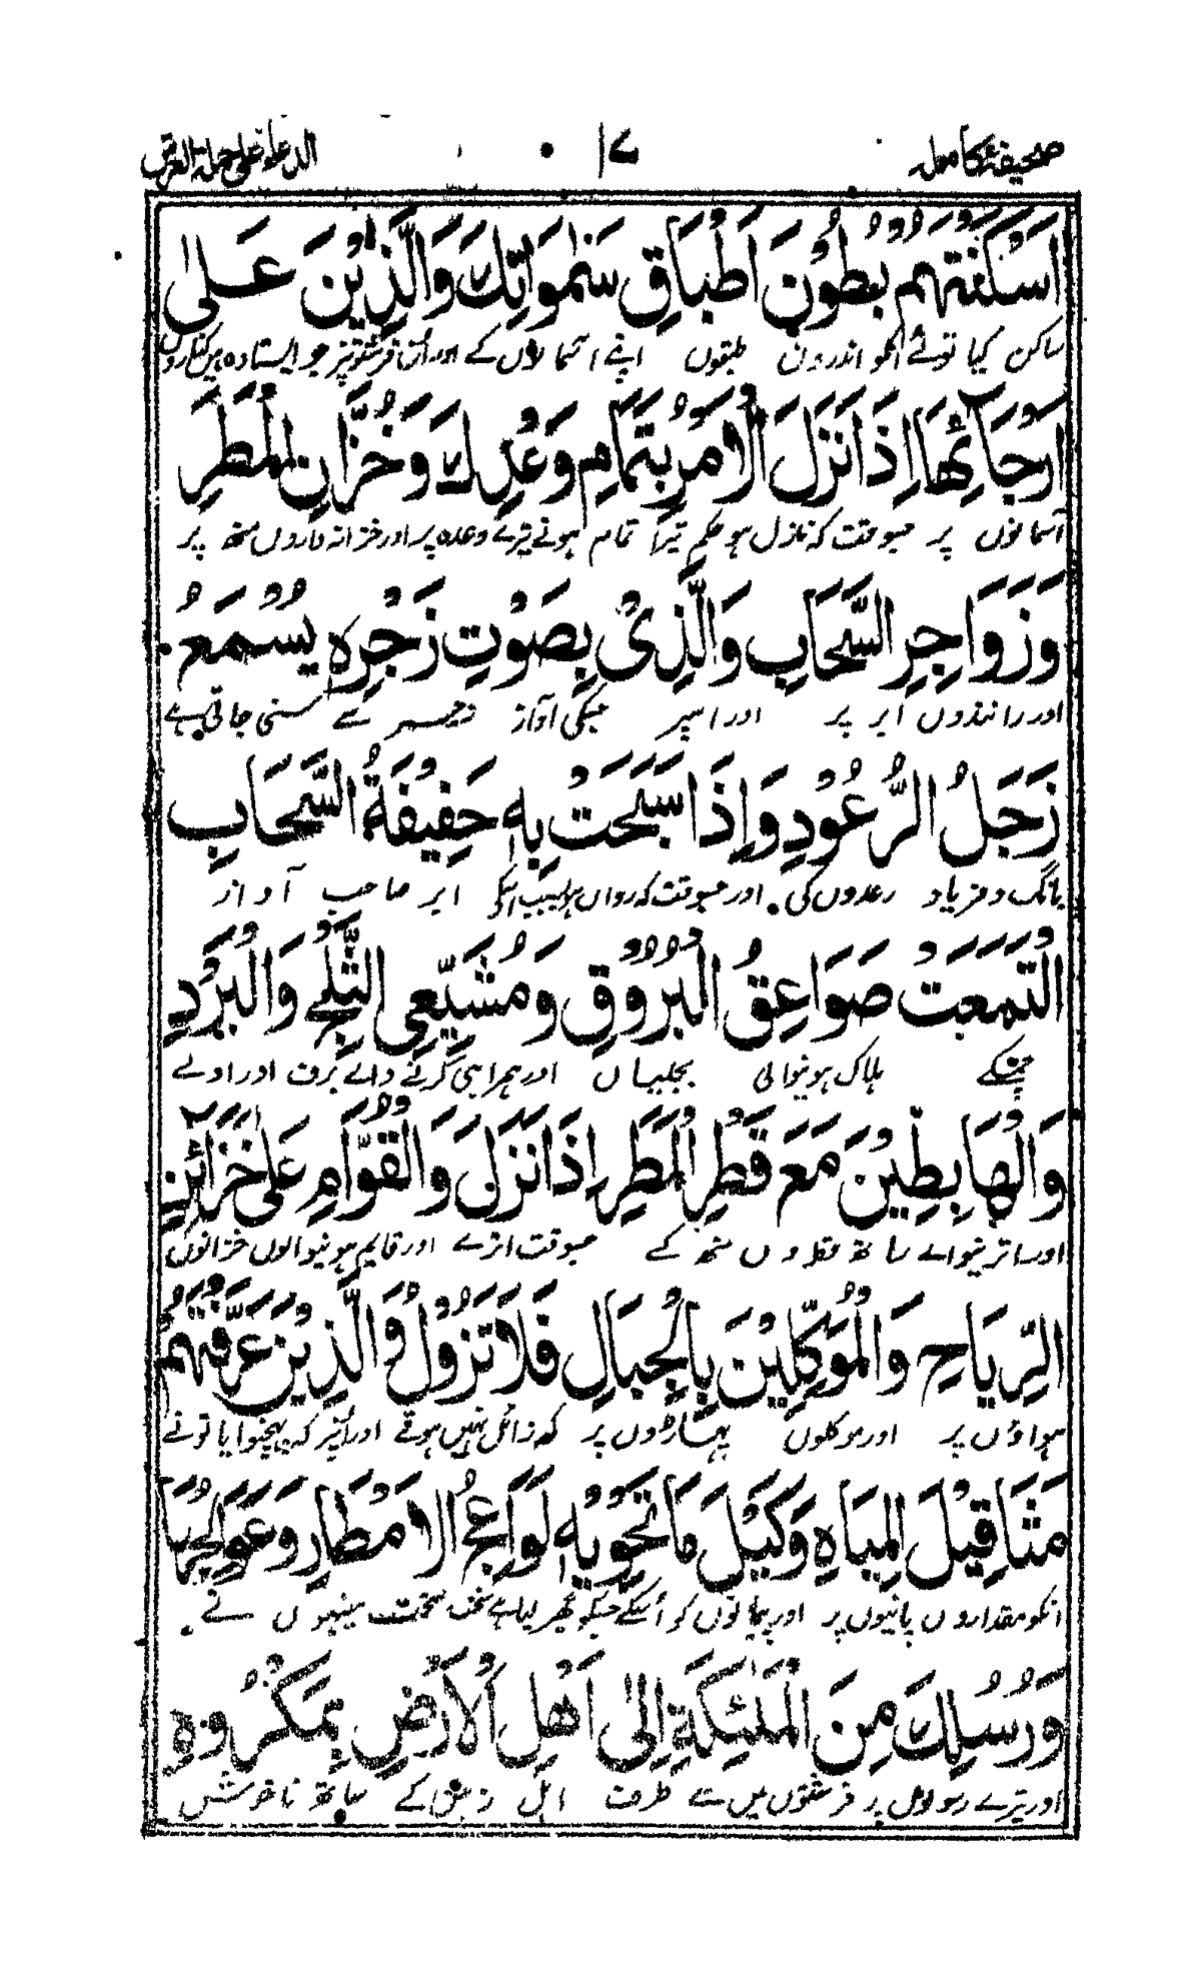 صحیفۂ کاملہ ۱۷ الدعاء علی حملة العرش
اَسْكَنْتَهُمْ بُطُوْنَ اَطْبَاقِ سَمٰوَاتِكَ وَالَّذِيْنَ عَلٰى
ساکن کیا تونے انکو اندرون طبقوں اپنے آسمانوں کے اور اُن فرشتوں پر جو ایستادہ ہیں کناروں
اَرْجَآئِهَا اِذَا نَزَلَ الْاَمْرُ بِتَمَامِ وَعْدِكَ وَخُزَّانِ الْمَطَرِ
آسمانوں پر جسوقت کہ نازل ہو حکم تیرا تمام ہونے تیرے وعدہ پر اور خزانہ داروں منھ پر
وَزَوَاجِرِ السَّحَابِ وَالَّذِىْ بِصَوْتِ زَجْرِهٖ يُسْمَعُ
اور رانندوں ابر پر اور اسپر جسکی آواز زجر سے سنی جاتی ہے
زَجَلُ الرُّعُوْدِ وَاِذَا سَبَحَتْ بِهٖ حَفِيْفَةُ السَّحَابِ
بانگ و فریاد رعدوں کی۔ اور جسوقت کہ رواں ہو بسبب اسکے ابر صاحب آواز
الْتَمَعَتْ صَوَاعِقُ الْبُرُوْقِ وَمُشَيِّعِى الثَّلْجِ وَالْبَرَدِ
چمکے ہلاک ہونیوالی بجلیاں اور ہمراہی کرنے والے برف اور اولے
وَالْهَابِطِيْنَ مَعَ قَطْرِ الْمَطَرِ اِذَا نَزَلَ وَالْقُوَّامِ عَلٰى خَزَآئِنِ
اور اترنیوالے ساتھ قطروں منھ کے جسوقت اترے اور قایم ہونیوالوں خزانوں
الرِّيَاحِ وَالْمُوَكَّلِيْنَ بِالْجِبَالِ فَلَا تَزُوْلُ وَالَّذِيْنَ عَرَّفْتَهُمْ
ہواؤں پر اور موکلوں پہاڑوں پر کہ زائل نہیں ہوتے اور اُنپر کہ پہچنوایا تونے
مَثَاقِيْلَ الْمِيَاهِ وَكَيْلَ مَا تَحْوِيْهِ لَوَاعِجُ الْاَمْطَارِ وَعَوَالِجُهَا
انکو مقداروں پانیوں پر اور پیمانوں کو اُسکے جسکو گھیر لیا ہے سخت مینہوں نے
وَرُسُلِكَ مِنَ الْمَلٰئِكَةِ اِلٰى اَهْلِ الْاَرْضِ بِمَكْرُوْهِ
اور تیرے رسولوں پر فرشتوں میں سے طرف اہل زمین کے ساتھ ناخوش